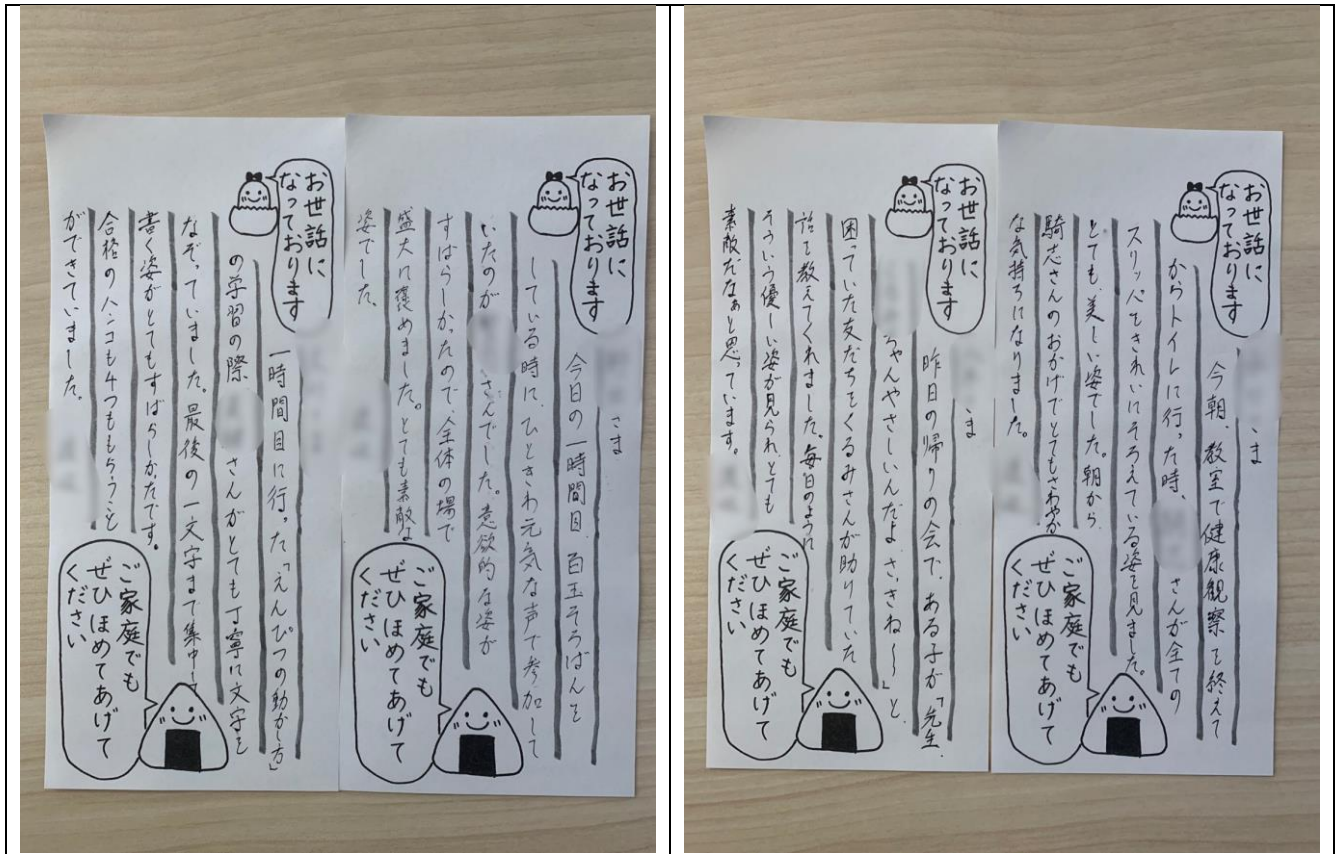 お世話に
なっております
さま
今日の一時間目、百玉そろばんを
している時に、ひときわ元気な声で参加して
いたのが さんでした。意欲的な姿が
すばらしかったので、全体の場で
盛大に褒めました。とても素敵な
姿でした。
ご家庭でも
ぜひほめてあげて
ください
お世話に
なっております
一時間目に行った「えんぴつの動かし方」
の学習の際、 さんがとても丁寧に文字を
なぞっていました。最後の一文字まで集中し
書く姿がとてもすばらしかたです。
合格のハンコも4つももらうこと
ができていました。
ご家庭でも
ぜひほめてあげて
ください
お世話に
なっております
ま
今朝、教室で健康観察を終えて
からトイレに行った時、 さんが全ての
スリッパをきれいにそろえている姿を見ました。
とても、美しい姿でした。朝から
騎志さんのおかげでとてもさわやか
な気持ちになりました。
ご家庭でも
ぜひほめてあげて
ください
お世話に
なっております
ま
昨日の帰りの会で、ある子が「先生、
ちゃんやさしいんだよ。さっきね〜〜」と、
困っていた友だちをくるみさんが助けていた
話を教えてくれました。毎日のように
そういう優しい姿が見られ、とても
素敵だなぁと思っています。
ご家庭でも
ぜひほめてあげて
ください